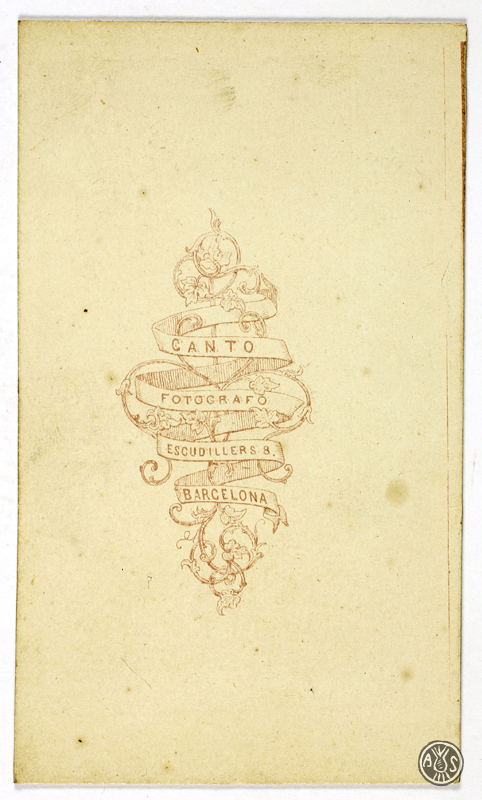 CANTO
FOTOGRAFO
ESCUDILLERS 8.
BARCELONA
A S